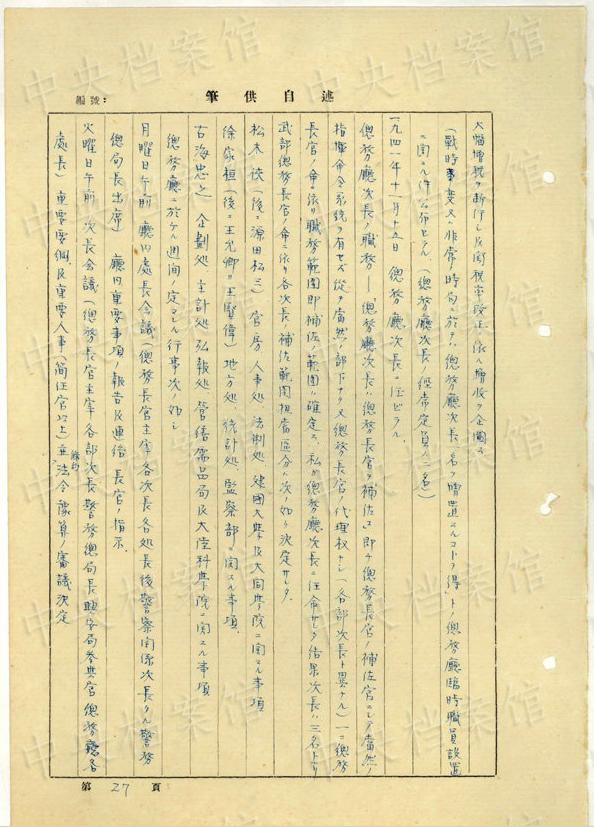 述自供筆
編號:
大幅増税ヲ断行シ及関税率改正ニ依ル増收ヲ企圖ス
(戰時事変又ハ非常ノ時局ニ於テハ總務廳次長一名ヲ増置スルコトヲ得」トノ總務廳臨時職員設置
ニ関スル件公布セラル(總務廳次長ノ経常定員ハ二名)
一九四一年十一月十五日 總務廳次長ニ任ゼラル.
總務廳次長ノ職務——「總務廳次長ハ總務長官ヲ補佐ス」即チ總務長官ノ補佐官ニシテ當然ノ
指揮命令系統ヲ有セズ従テ當然ノ部下ナク又總務長官ノ代理权ナシ(各部次長ト異ナル)一ニ總務
長官ノ命ニ依リ職務範圍即補佐ノ範圍ハ確定ス、私ガ總務廳次長ニ任命サレタ結果次長ハ三名トナリ
武部總務長官ノ命ニ依リ各次長ノ補佐範圍担當区分ハ次ノ如ク決定サレタ.
松木 侠(後ニ源田松三) 官房 人事処 法制処 建國大學及大同學院ニ関スル事項
徐家桓(後ニ王允卿ニ王賢偉) 地方処 統計処 監察部ニ関スル事項
古海忠之 企劃処 主計処 弘報処 營繕需品局及大陸科學院ニ関スル事項
總務廳ニ於ケル週间ノ定マレル行事次ノ如シ
月曜日午前 廳内処長会議(總務長官主宰各次長各処長後警察関係次長タル警務
總局長出席) 廳内重要事項ノ報告及連絡 長官ノ指示.
火曜日午前 次長会議(總務長官主宰 各部次長 警務總局長 興安局参與官 總務廳各
処長) 重要要綱及重要人事(簡任官以上)並法令豫算ノ審議決定
第 27 頁
中央档案馆